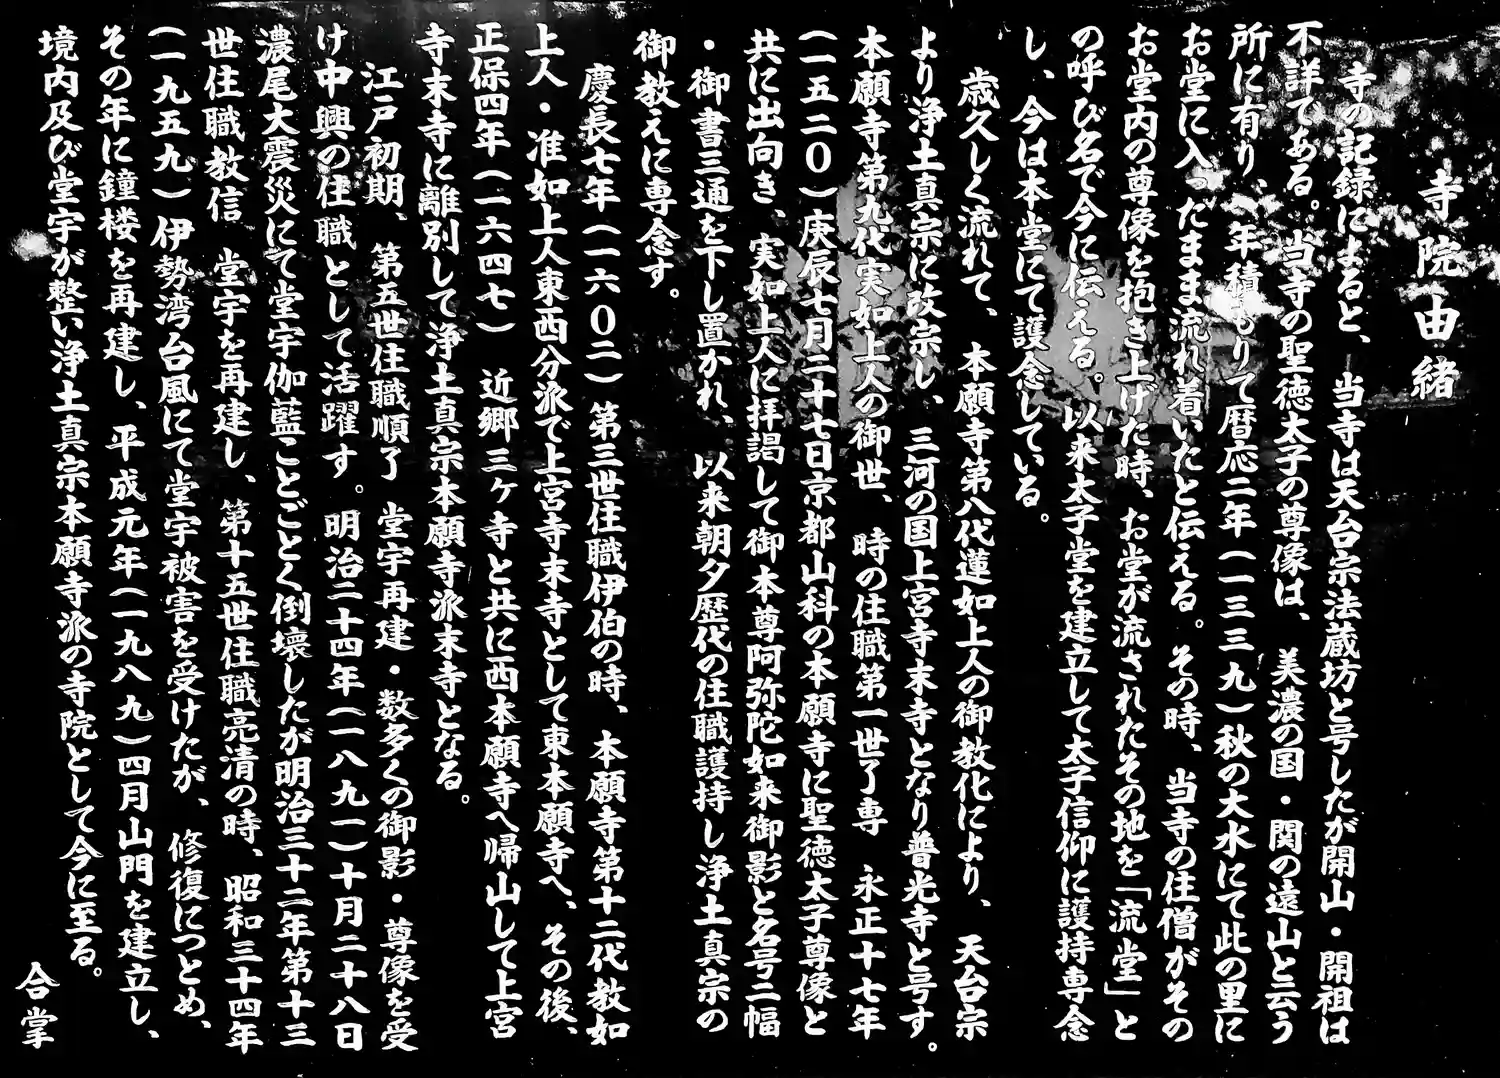 寺院由緒
寺の記録によると、当寺は天台宗法蔵坊と号したが開山・開祖は
不詳である。当寺の聖徳太子の尊像は、美濃の国・関の遠山と云う
所に有り、年積もりて暦応二年(一三三九)秋の大水にて此の里に
お堂に入ったまま流れ着いたと伝える。その時、当寺の住僧がその
お堂内の尊像を抱き上げた時、お堂が流されたその地を「流堂」と
の呼び名で今に伝える。以来太子堂を建立して太子信仰に護持専念
し、今は本堂にて護念している。
歳久しく流れて、本願寺第八代蓮如上人の御教化により、天台宗
より浄土真宗に改宗し、三河の国上宮寺末寺となり普光寺と号す。
本願寺第九代実如上人の御世、時の住職第一世了専 永正十七年
(一五二〇)庚辰七月二十七日京都山科の本願寺に聖徳太子尊像と
共に出向き、実如上人に拝謁して御本尊阿弥陀如来御影と名号二幅
・御書三通を下し置かれ、以来朝夕歴代の住職護持し浄土真宗の
御教えに専念す。
慶長七年(一六〇二)第三世住職伊伯の時、本願寺第十二代教如
上人・准如上人東西分派で上宮寺末寺として東本願寺へ、その後、
正保四年(一六四七)近郷三ヶ寺と共に西本願寺へ帰山して上宮
寺末寺に離別して浄土真宗本願寺派末寺となる。
江戸初期、第五世住職順了 堂宇再建・数多くの御影・尊像を受
け中興の住職として活躍す。明治二十四年(一八九一)十月二十八日
濃尾大震災にて堂宇伽藍ことごとく倒壊したが明治三十二年第十三
世住職教信 堂宇を再建し、第十五世住職亮清の時、昭和三十四年
(一九五九)伊勢湾台風にて堂宇被害を受けたが、修復につとめ、
その年に鐘楼を再建し、平成元年(一九八九)四月山門を建立し、
境内及び堂宇が整い浄土真宗本願寺派の寺院として今に至る。
合掌